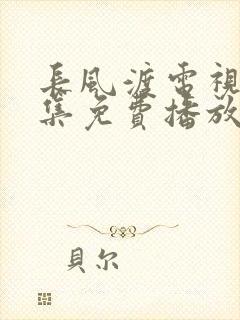 長風渡電視
集免費播放
貝尔